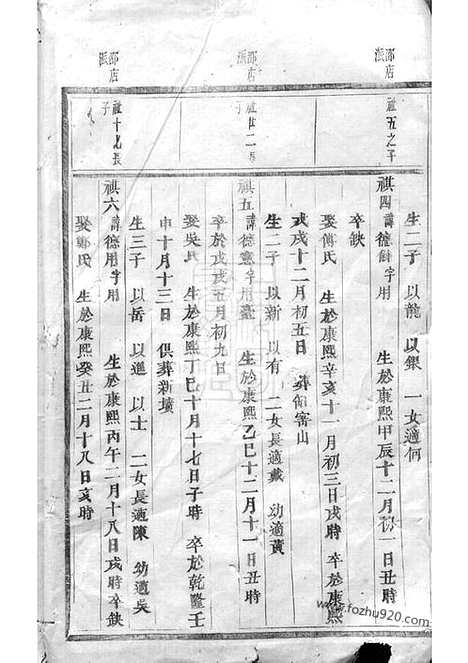 邵店派
祖五之子
生二子 以龍 以銀 一女適何
祺四 諱德 字用 生於康熙甲辰十二月初一日丑時
卒缺
娶傅氏 生於康熙辛亥十一月初三日戌時 卒於康熙
戊戌十二月初五日 葬 窨山
生二子 以新 以有 二女長適戴 幼適黃
邵店派
祖廿二 子
祺五 諱德憲字用 生於康熙乙巳十二月十一日丑時
卒於戊戌五月初九日
娶吳氏 生於康熙丁巳十月十七日子時 卒於乾隆壬
申十月十三日 俱葬新墳
生三子 以岳 以進 以士 二女長適陳 幼適吳
邵店派
祖十 長子
祺六 諱德用字用 生於康熙丙午二月十八日戌時卒缺
娶鄭氏 生於康熙癸丑二月十八日亥時
www.fozhu920.com